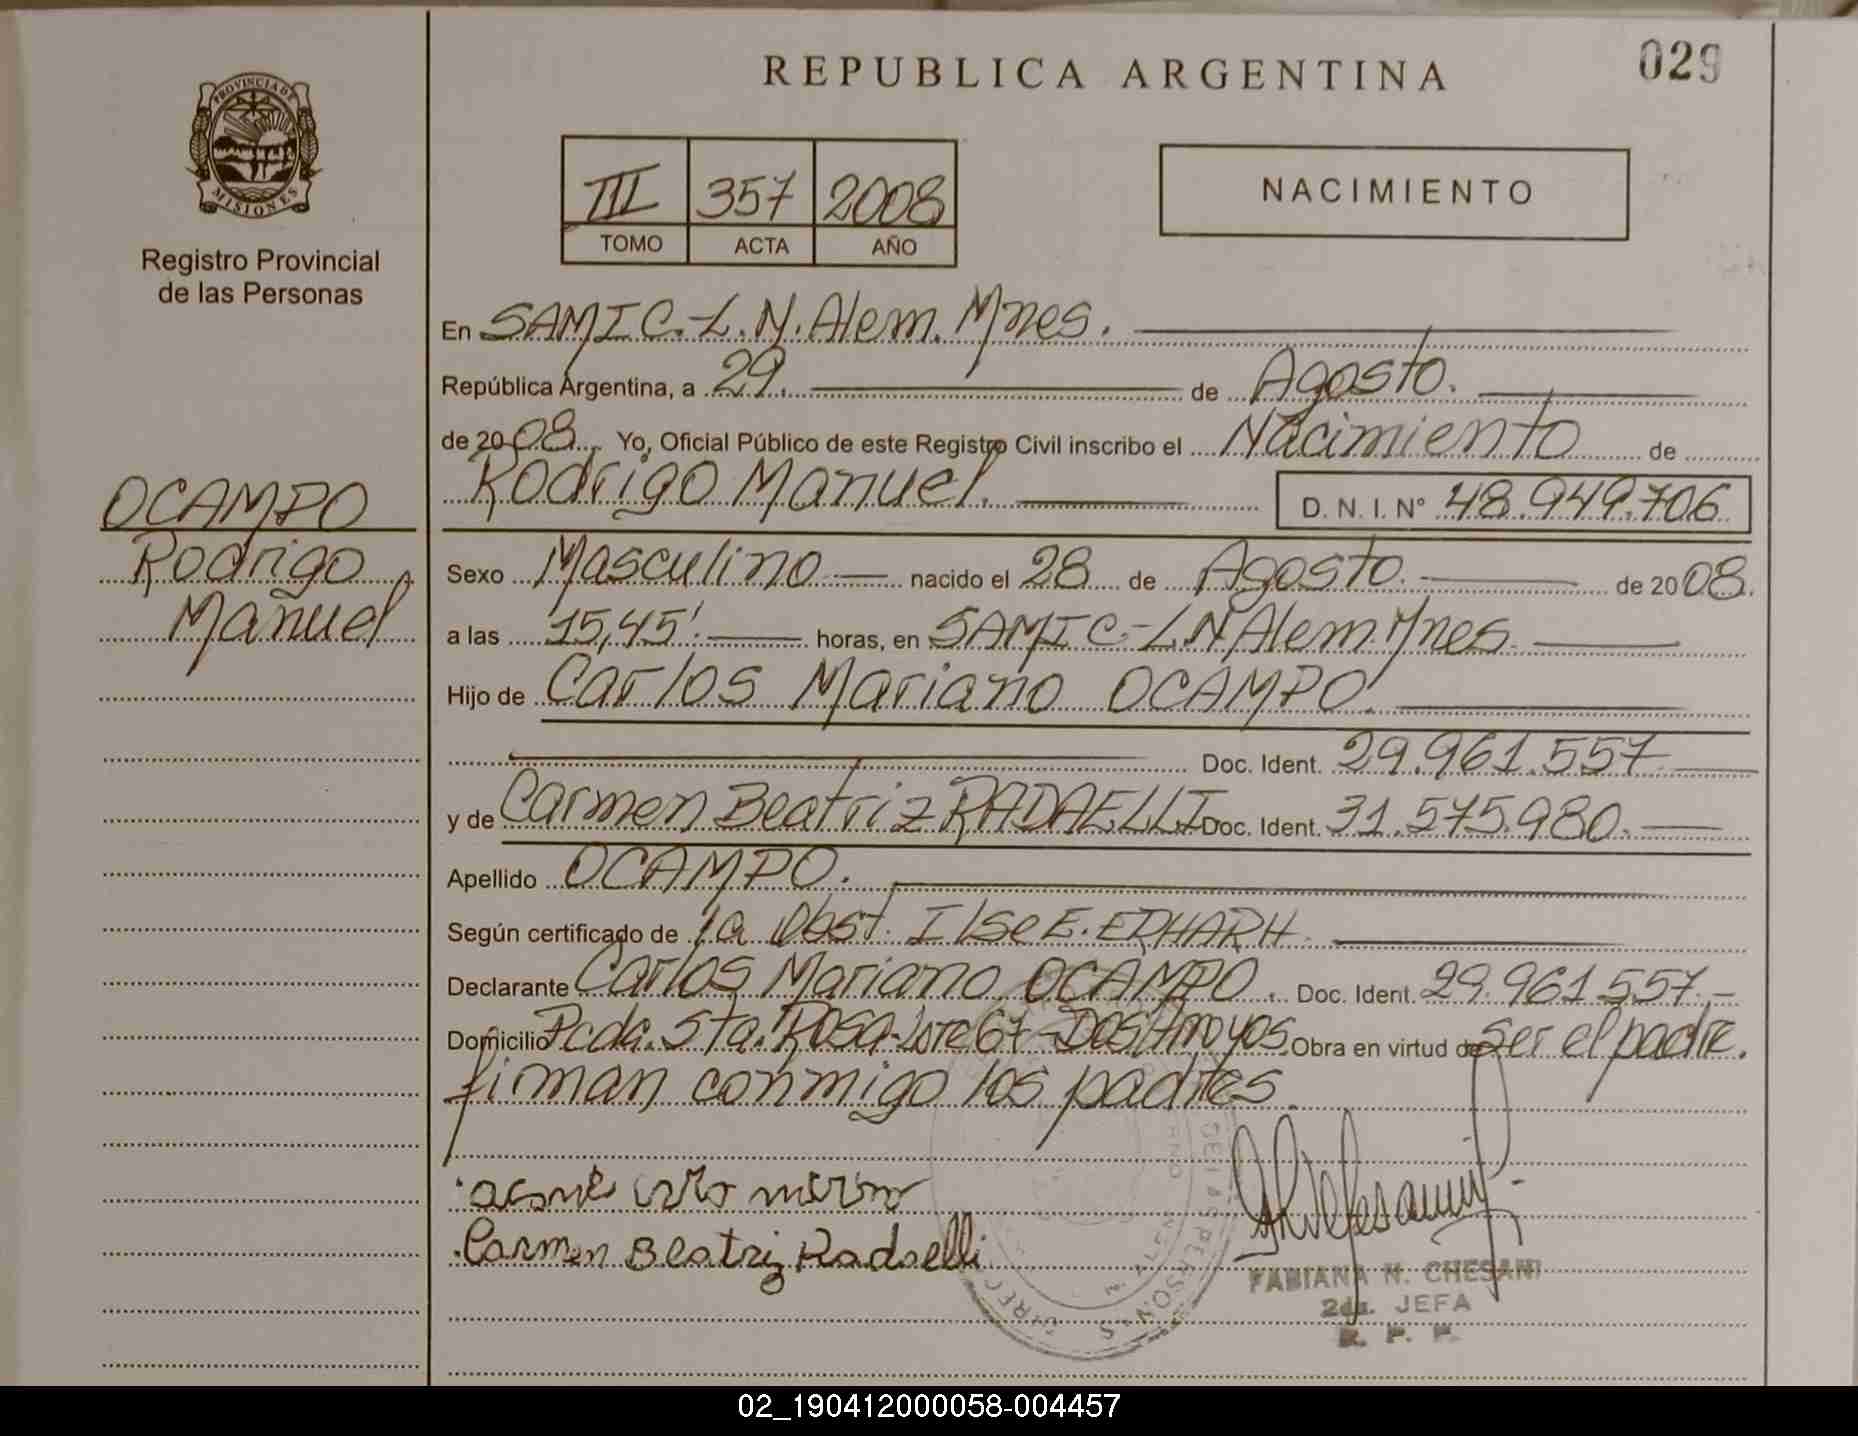 029
REPUBLICA ARGENTINA
PROVINCIA DE
MISIONES
Registro Provincial
de las Personas
III 357 2008
TOMO ACTA AÑO
NACIMIENTO
En SAMIC.-L.N.Alem.Mnes.
República Argentina, a 29. de Agosto.
de 2008. Yo, Oficial Público de este Registro Civil inscribo el Nacimiento de
Rodrigo Manuel. D. N. I. N° 48.949.706
OCAMPO
Rodrigo
Manuel
Sexo Masculino nacido el 28 de Agosto. de 2008.
a las 15,45'. horas, en SAMIC-L.N Alem.Mnes.
Hijo de Carlos Mariano OCAMPO.
Doc. Ident. 29.961.557
y de Carmen Beatriz RADAELLI Doc. Ident. 31.575.980.
Apellido OCAMPO.
Según certificado de la Obst. Ilse E.
Declarante Carlos Mariano OCAMPO. Doc. Ident. 29.961.557.-
Domicilio Pcda. Sta. Rosa-Lote 67-Dos Arroyos. Obra en virtud de Ser el padre.
firman conmigo los padres
Carmen Beatriz Radaelli
FABIANA N. CHESANI
2da. JEFA
R. P. P.
02_190412000058-004457